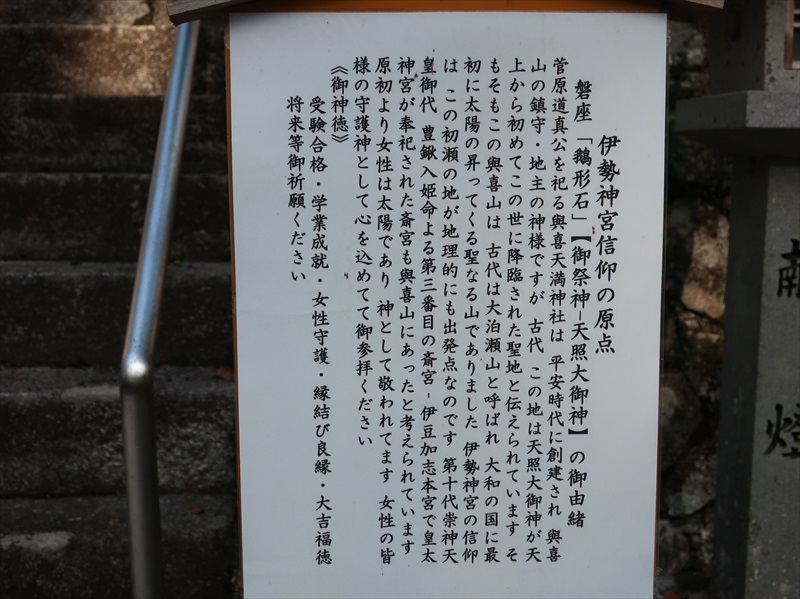 伊勢神宮信仰の原点
磐座 「鵝形石」【御祭神－天照大御神】の御由緒
菅原道真公を祀る與喜天満神社は 平安時代に創建され 與喜
山の鎮守・地主の神様ですが 古代 この地は天照大御神が天
上から初めてこの世に降臨された聖地と伝えられています そ
もそもこの與喜山は 古代は大泊瀬山と呼ばれ 大和の国に最
初に太陽の昇ってくる聖なる山でありました 伊勢神宮の信仰
は この初瀬の地が地理的にも出発点なのです 第十代崇神天
皇御代 豊鍬入姫命よる第三番目の斎宮－伊豆加志本宮で皇太
神宮が奉祀された斎宮も與喜山にあったと考えられています
原初より女性は太陽であり 神として敬われてます 女性の皆
様の守護神として心を込めてて御参拝ください
《御神徳》
受験合格・学業成就・女性守護・縁結び良縁・大吉福徳
将来等御祈願ください
献
燈